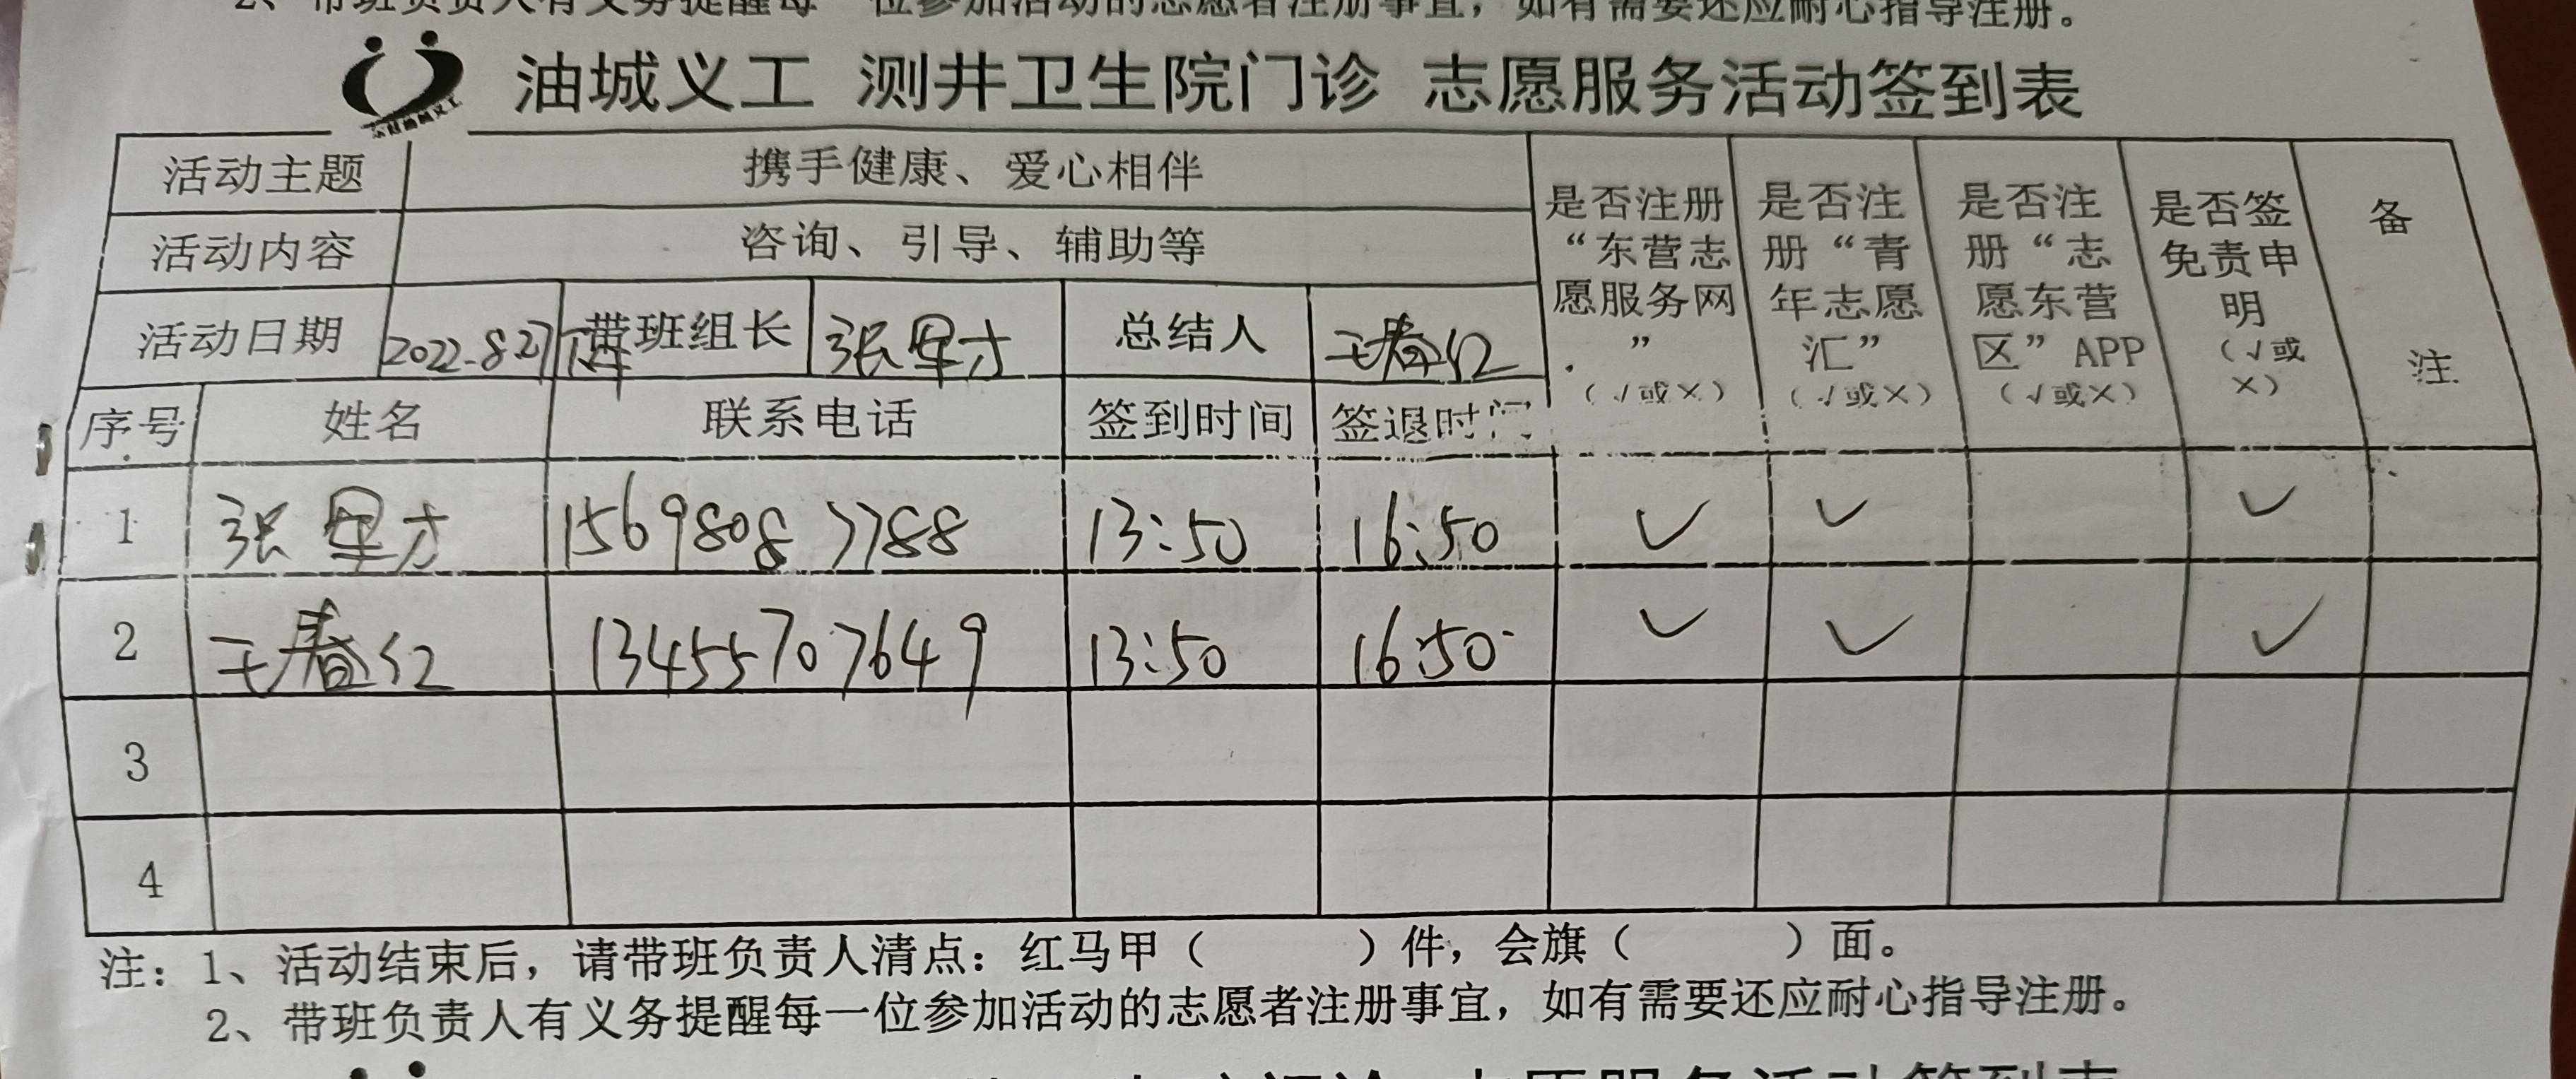 2、带班负责人有义务提醒每一位参加活动的志愿者注册事宜，如有需要还应耐心指导注册。
油城义工 测井卫生院门诊 志愿服务活动签到表
活动主题 携手健康、爱心相伴
活动内容 咨询、引导、辅助等
活动日期 2022.8.27 带班组长 张 才 总结人 王春红
是否注册“东营志愿服务网”（√或×）
是否注册“青年志愿汇”（√或×）
是否注册“志愿东营区”APP（√或×）
是否签免责申明（√或×）
备注
序号 姓名 联系电话 签到时间 签退时间
1 张 才 15698087788 13:50 16:50 √ √ √
2 王春红 13455707649 13:50 16:50 √ √ √
3
4
注：1、活动结束后，请带班负责人清点：红马甲（ ）件，会旗（ ）面。
2、带班负责人有义务提醒每一位参加活动的志愿者注册事宜，如有需要还应耐心指导注册。